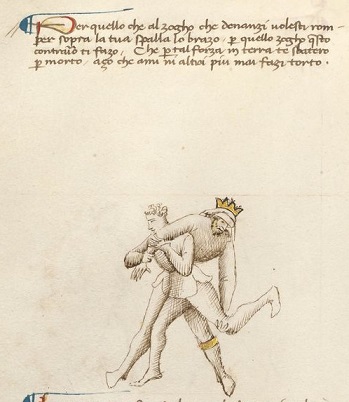 Per quello che al zogho che denanzi volesti rom-
per sopra la tua spalla lo brazo. per quello zogho q̃sto
contrario ti fazo, Che per tal forza in terra te sbatero
per morto, aço che a mi ni altroi piu mai fazi torto.